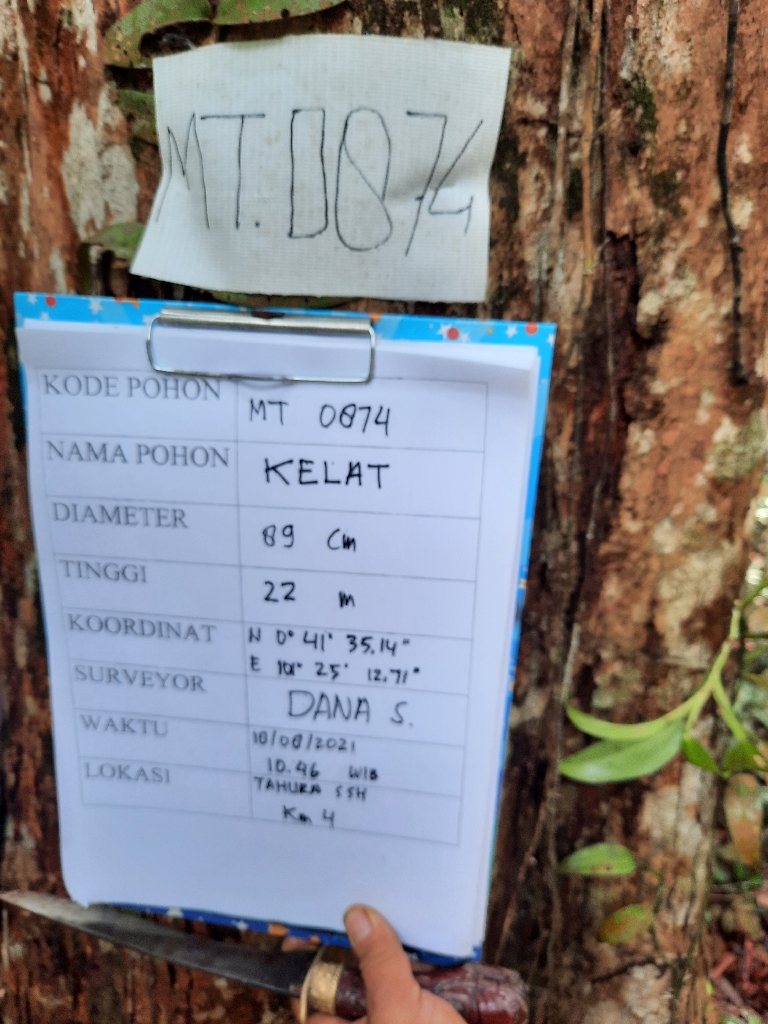 MT.0874
KODE POHON MT 0874
NAMA POHON KELAT
DIAMETER 89 Cm
TINGGI 22 m
KOORDINAT N 0° 41' 35.14"
E 101° 25' 12.71"
SURVEYOR DANA S.
WAKTU 18/08/2021
10.46 WIB
LOKASI TAHURA SSH
Km 4